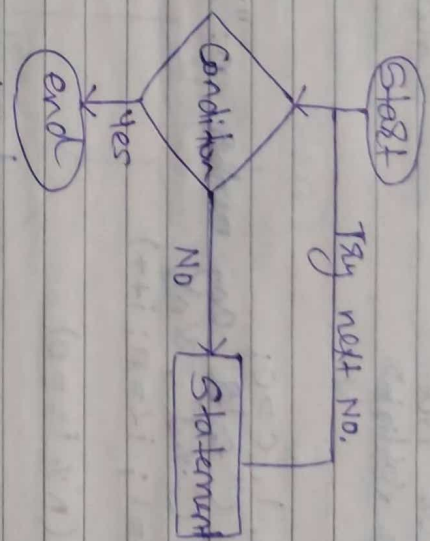 Start
Try next No.
Condition
No
Statement
Yes
end